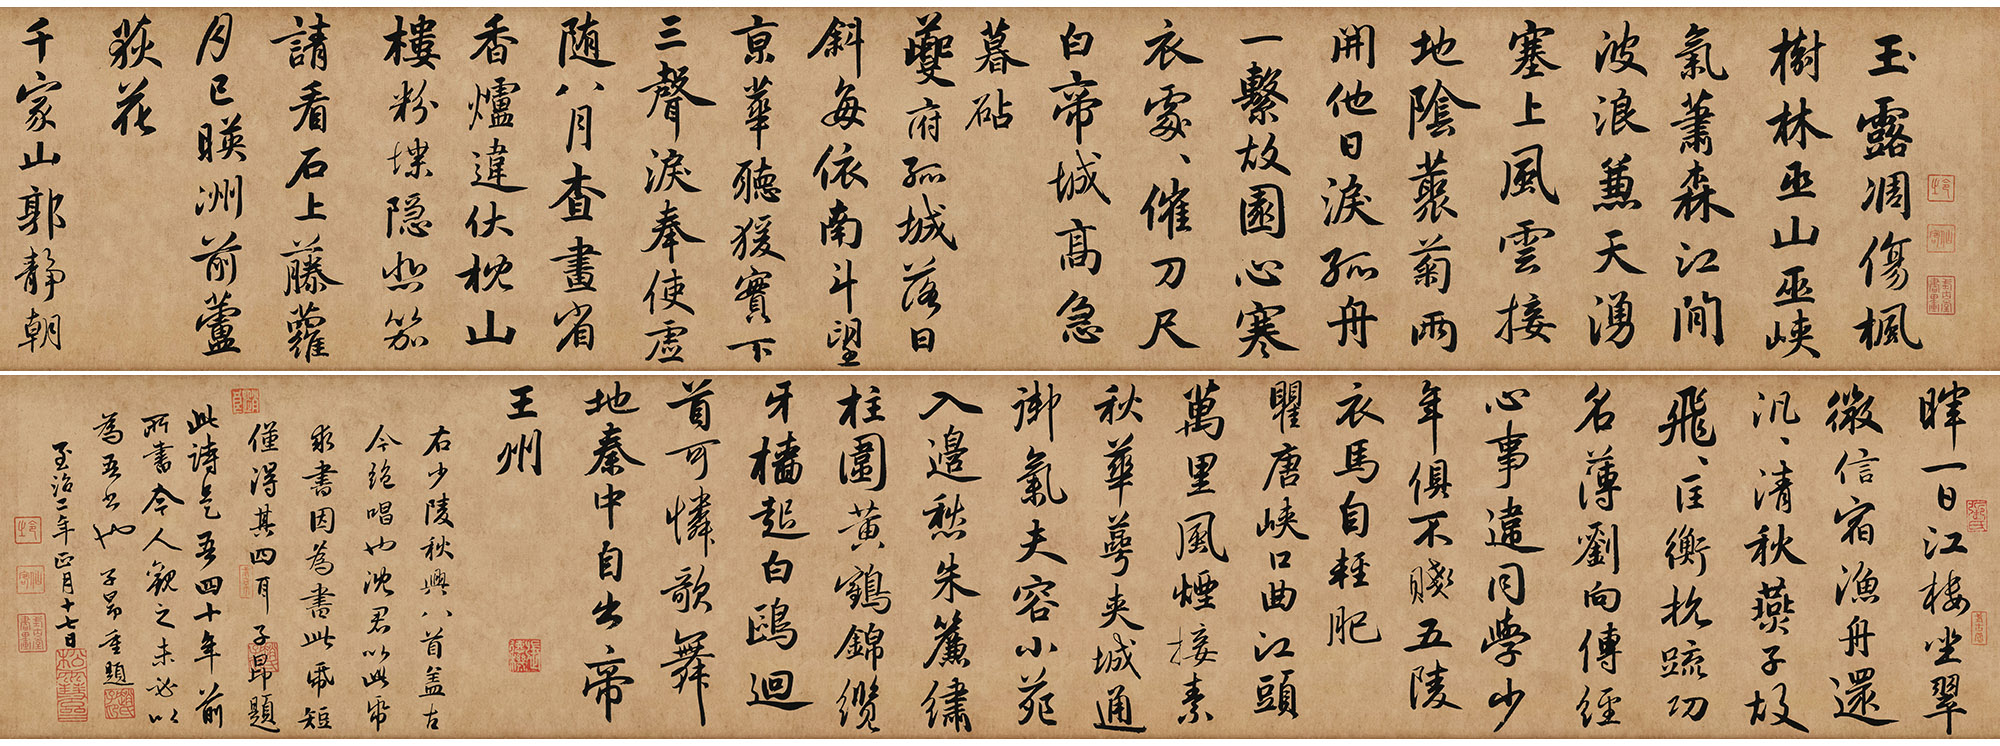 玉露凋傷楓
樹林巫山巫峽
氣蕭森江間
波浪兼天湧
塞上風雲接
地陰蘘菊兩
開他日淚孤舟
一繫故園心寒
衣處、催刀尺
白帝城高急
暮砧
夔府孤城落日
斜每依南斗望
京華聽猨實下
三聲淚奉使虛
隨八月查畫省
香爐違伏枕山
樓粉堞隱悲笳
請看石上藤蘿
月已暎洲前蘆
荻花
千家山郭静朝
暉一日江樓坐翠
微信宿漁舟還
汎、清秋燕子故
飛、匡衡抗疏功
名薄劉向傳經
心事違同學少
年俱不賤五陵
衣馬自輕肥
瞿唐峽口曲江頭
萬里風煙接素
秋華萼夾城通
御氣夫容小苑
入邊愁朱簾繡
柱圍黃鶴錦纜
牙檣起白鷗迴
首可憐歌舞
地秦中自古帝
王州
右少陵秋興八首盖古
今絶唱也沈君以此帋
求書因為書此帋短
僅得其四耳子昂題
此詩是吾四十年前
所書今人觀之未必以
為吾書也子昂重題
至治二年正月十七日